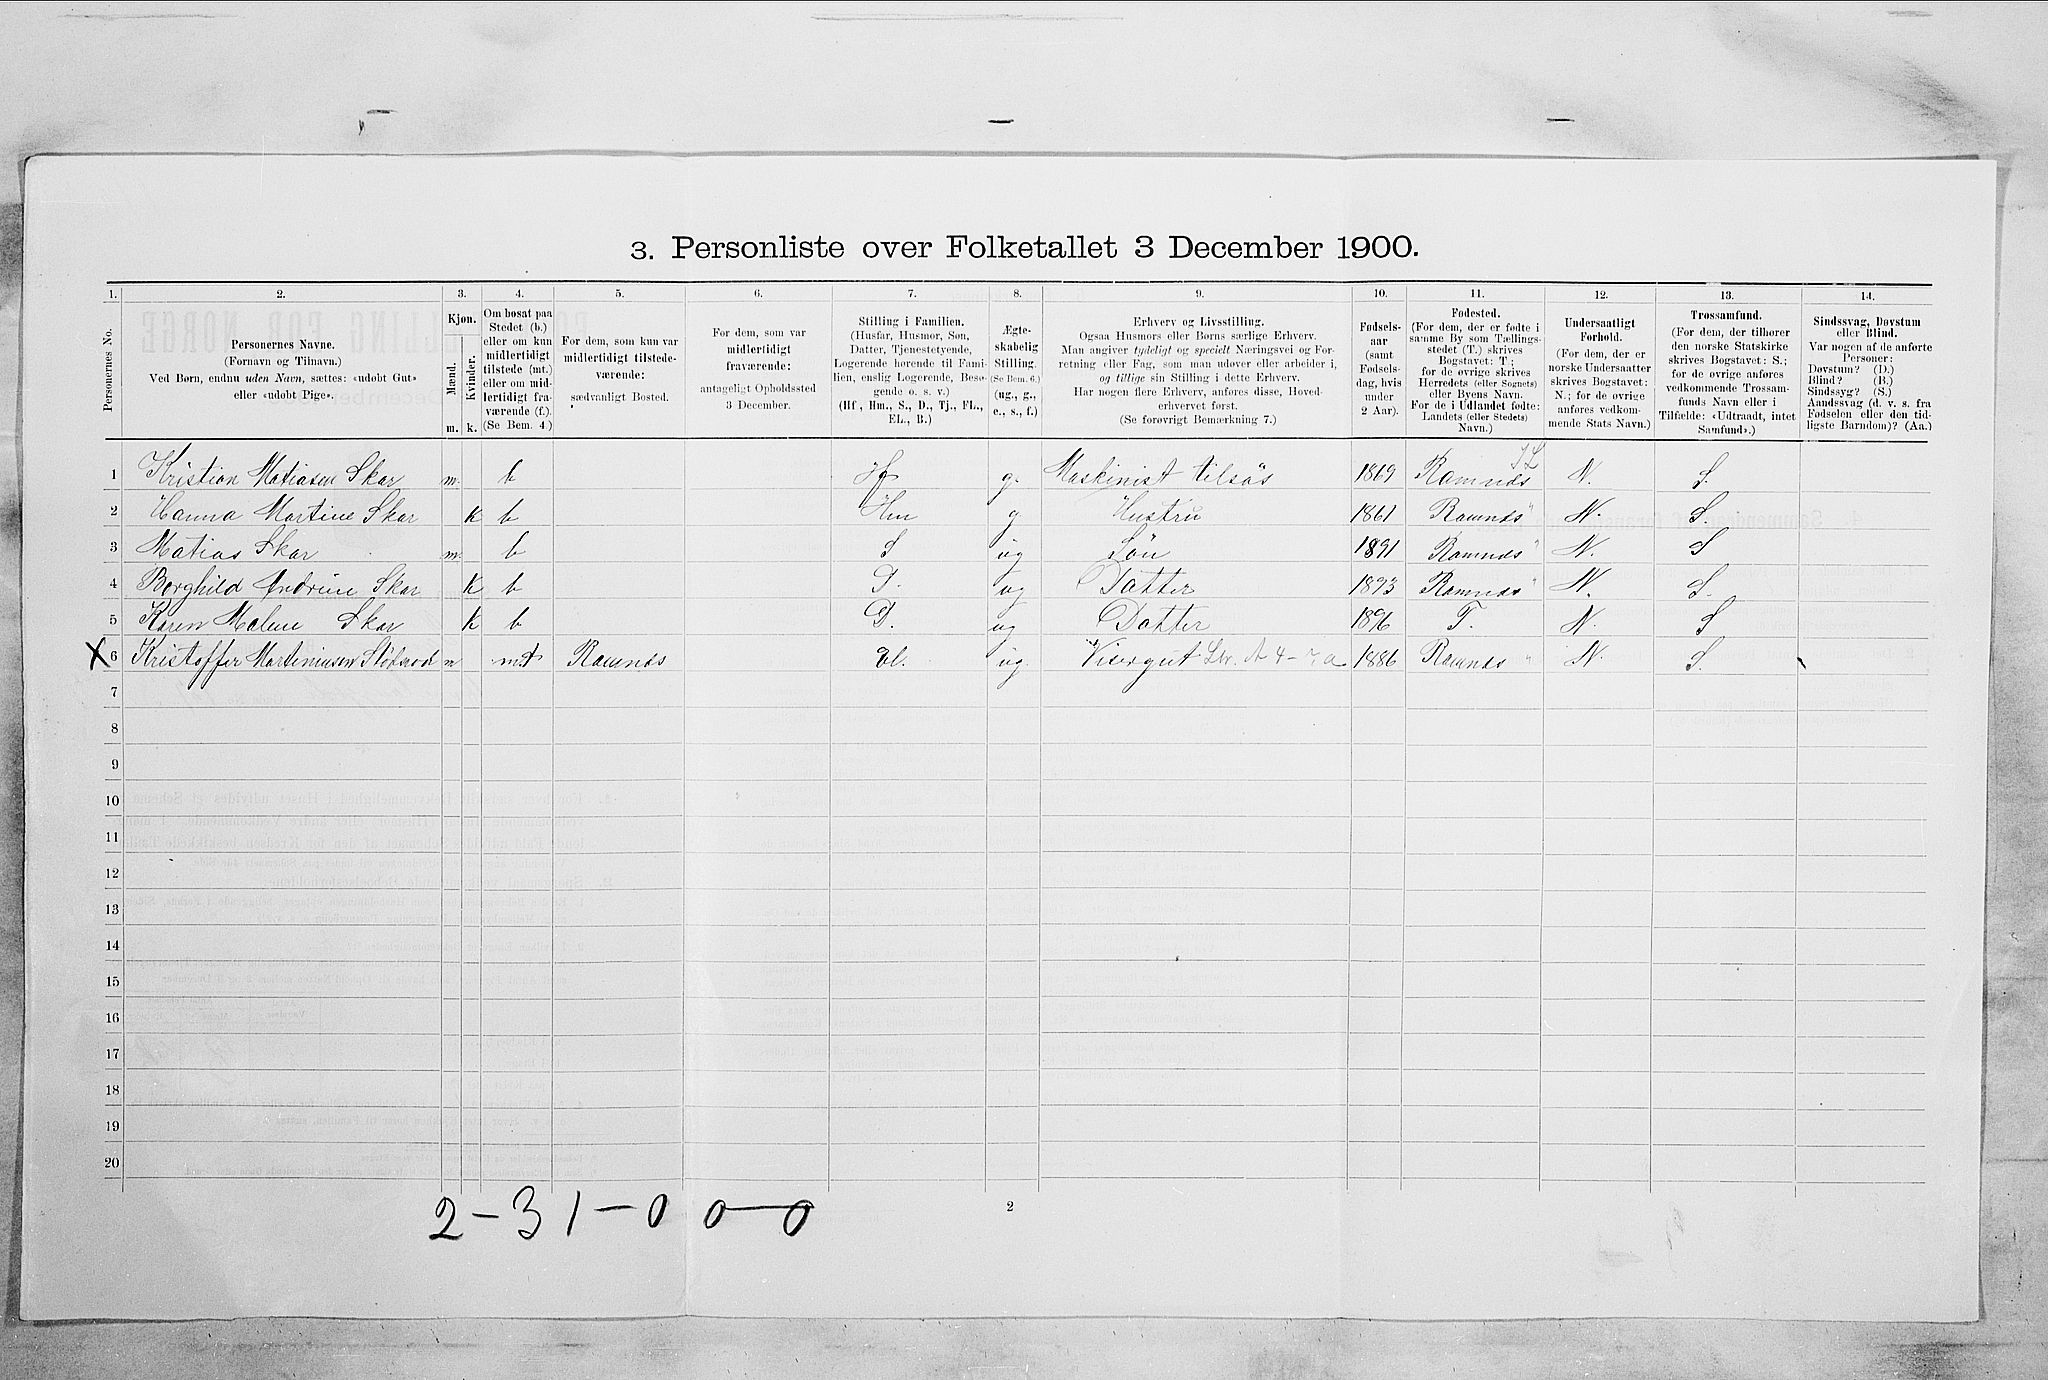 3. Personliste over Folketallet 3 December 1900.
1. 2. 3. 4. 5. 6. 7. 8. 9. 10. 11. 12. 13. 14.
Personernes No.
Personernes Navne.
(Fornavn og Tilnavn.)
Ved Børn, endnu uden Navn, sættes: «udøbt Gut»
eller «udøbt Pige».
Kjøn.
Mænd.
Kvinder.
m. k.
Om bosat paa
Stedet (b.)
eller om kun
midlertidigt
tilstede (mt.)
eller om mid-
lertidigt fra-
værende (f.).
(Se Bem. 4.)
For dem, som kun var
midlertidigt tilstede-
værende:
sædvanligt Bosted.
For dem, som var
midlertidigt
fraværende:
antageligt Opholdssted
3 December.
Stilling i Familien.
(Husfar, Husmor, Søn,
Datter, Tjenestetyende,
Logerende hørende til Fami-
lien, enslig Logerende, Besø-
gende o. s. v.)
(Hf., Hm., S., D., Tj., FL.,
EL., B.)
Ægte-
skabelig
Stilling.
(Se Bem. 6.)
(ug., g.,
e., s., f.)
Erhverv og Livsstilling.
Ogsaa Husmors eller Børns særlige Erhverv.
Man angiver tydeligt og specielt Næringsvei og For-
retning eller Fag, som man udøver eller arbeider i,
og tillige sin Stilling i dette Erhverv.
Har nogen flere Erhverv, anføres disse, Hoved-
erhvervet først.
(Se forøvrigt Bemærkning 7.)
Fødsels-
aar
(samt
Fødsels-
dag, hvis
under
2 Aar).
Fødested.
(For dem, der er fødte i
samme By som Tællings-
stedet (T.) skrives
Bogstavet: T.;
for de øvrige skrives
Herredets (eller Sognets)
eller Byens Navn.
For de i Udlandet fødte:
Landets (eller Stedets)
Navn.)
Undersaatligt
Forhold.
(For dem, der er
norske Undersaatter
skrives Bogstavet:
N.; for de øvrige
anføres vedkom-
mende Stats Navn.)
Trossamfund.
(For dem, der tilhører
den norske Statskirke
skrives Bogstavet: S.;
for de øvrige anføres
vedkommende Trossam-
funds Navn eller i
Tilfælde: «Udtraadt, intet
Samfund».)
Sindssvag, Døvstum
eller Blind.
Var nogen af de anførte
Personer:
Døvstum? (D.)
Blind? (B.)
Sindssyg? (S.)
Aandssvag (d. v. s. fra
Fødselen eller den tid-
ligste Barndom)? (Aa.)
1 Kristian Matiasen Skar m. b Hf g. Maskinist tilsøs 1869 Ramnds JL N. S.
2 Hanna Martine Skar k b Hm g Hustru 1861 Ramnds " N. S.
3 Matias Skar m. b S ug Søn 1891 Ramnds " N. S
4 Borghild Andrine Skar k b D. ug Datter 1893 Ramnds " N. S.
5 Karen Malene Skar k b D. ug Datter 1896 T. N. S
X 6 Kristoffer Martiniusen m mt Ramnds el. ug. Visergut 1886 Ramnds " N. S.
7
8
9
10
11
12
13
14
15
16
17
18
19
20
2 – 3 1 – 0 0 – 0
2